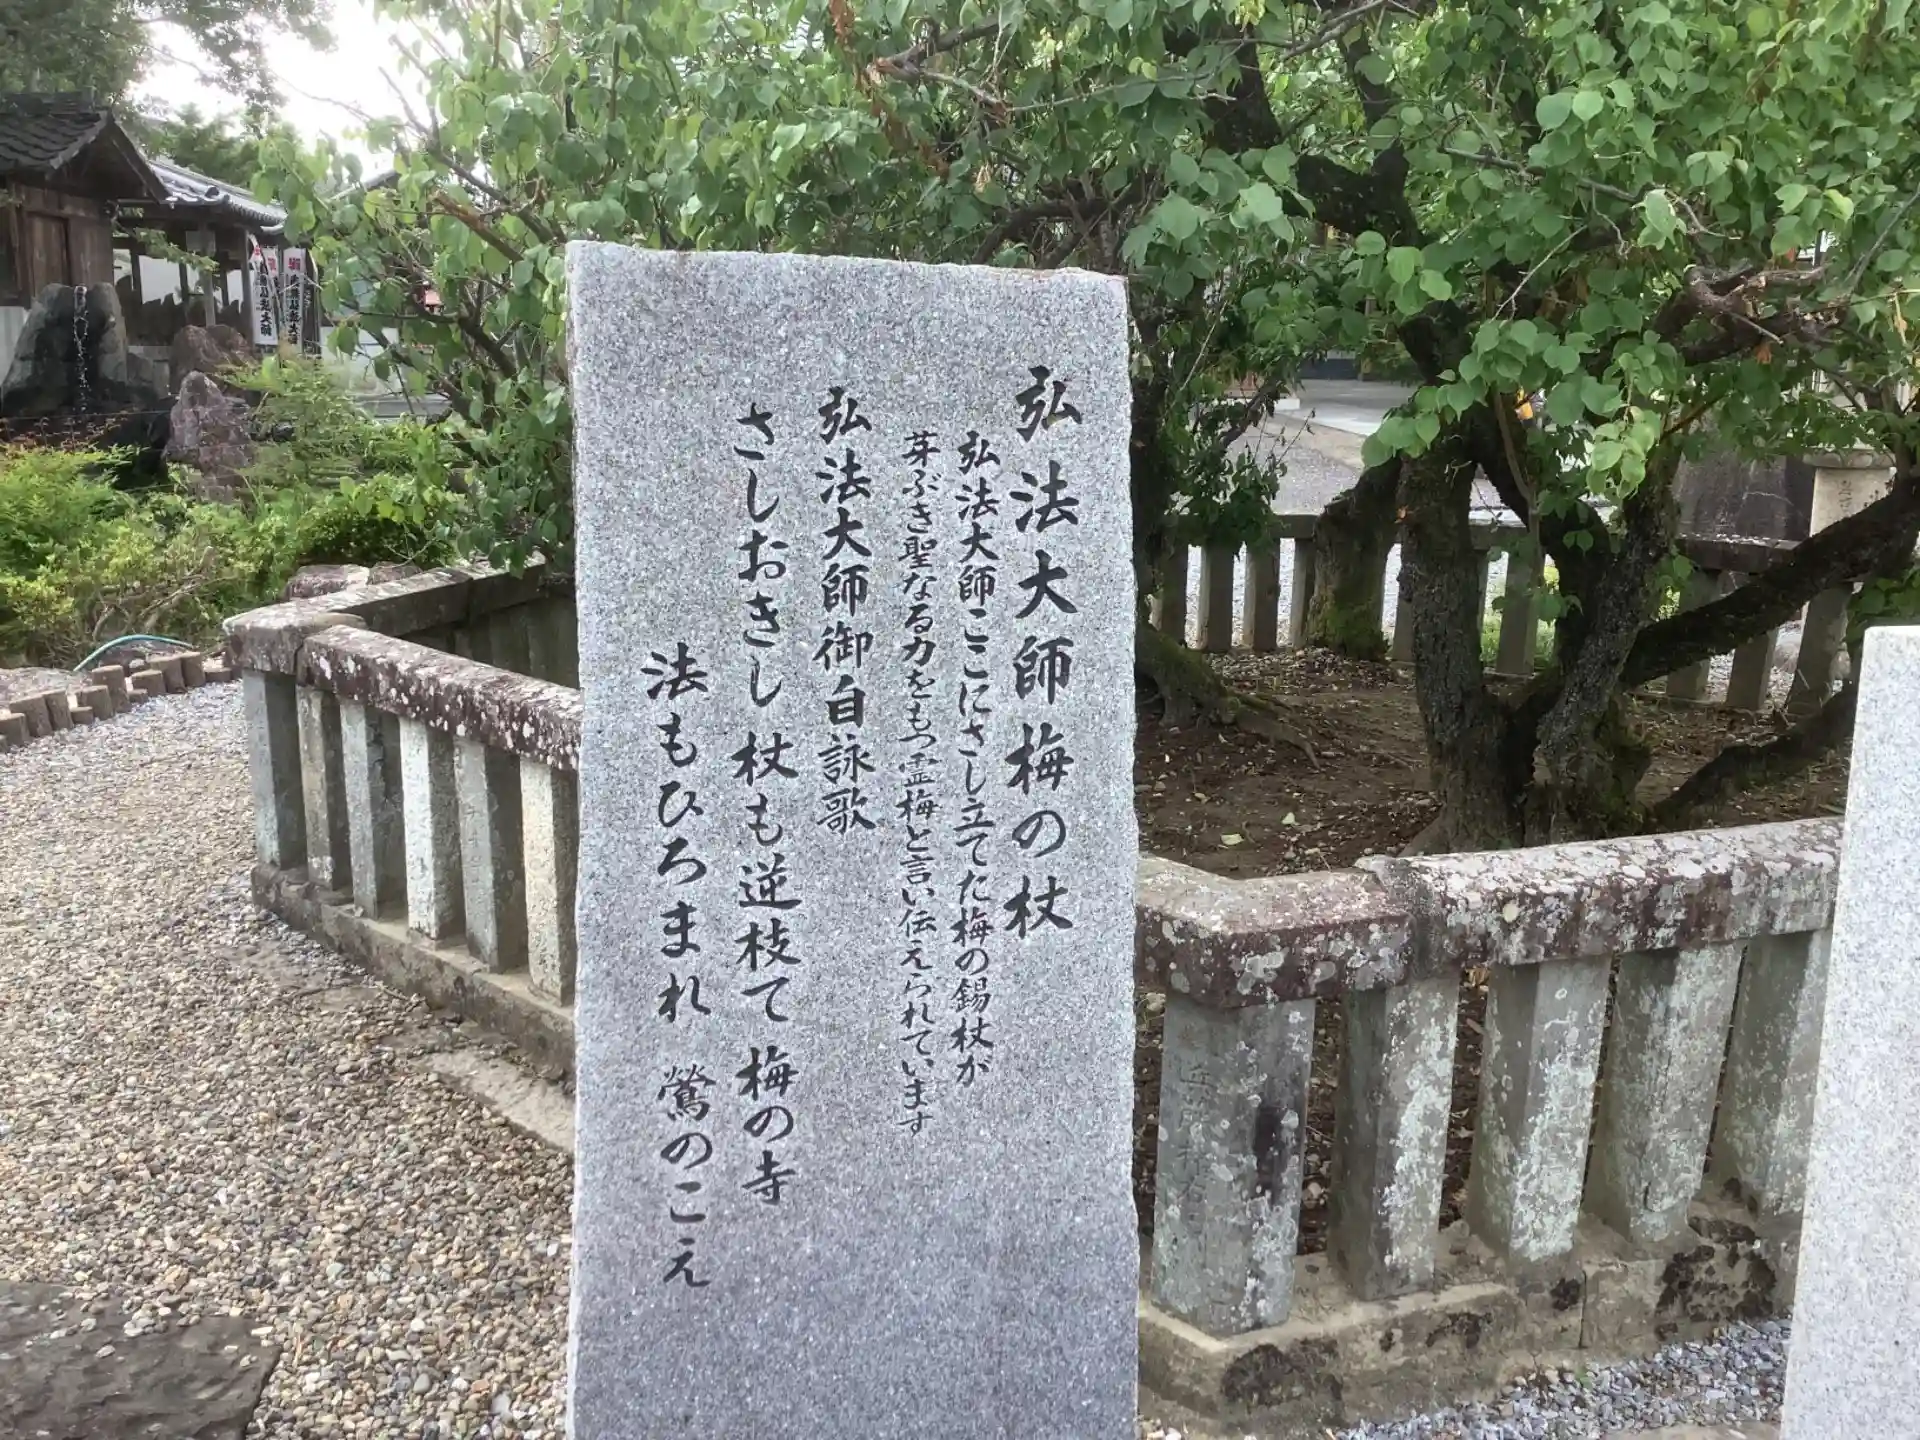 弘法大師梅の杖
弘法大師ここにさし立てた梅の錫杖が
芽ぶき聖なる力をもつ霊梅と言い伝えられています
弘法大師御自詠歌
さしおきし 杖も逆枝て 梅の寺
法もひろまれ 鶯のこえ